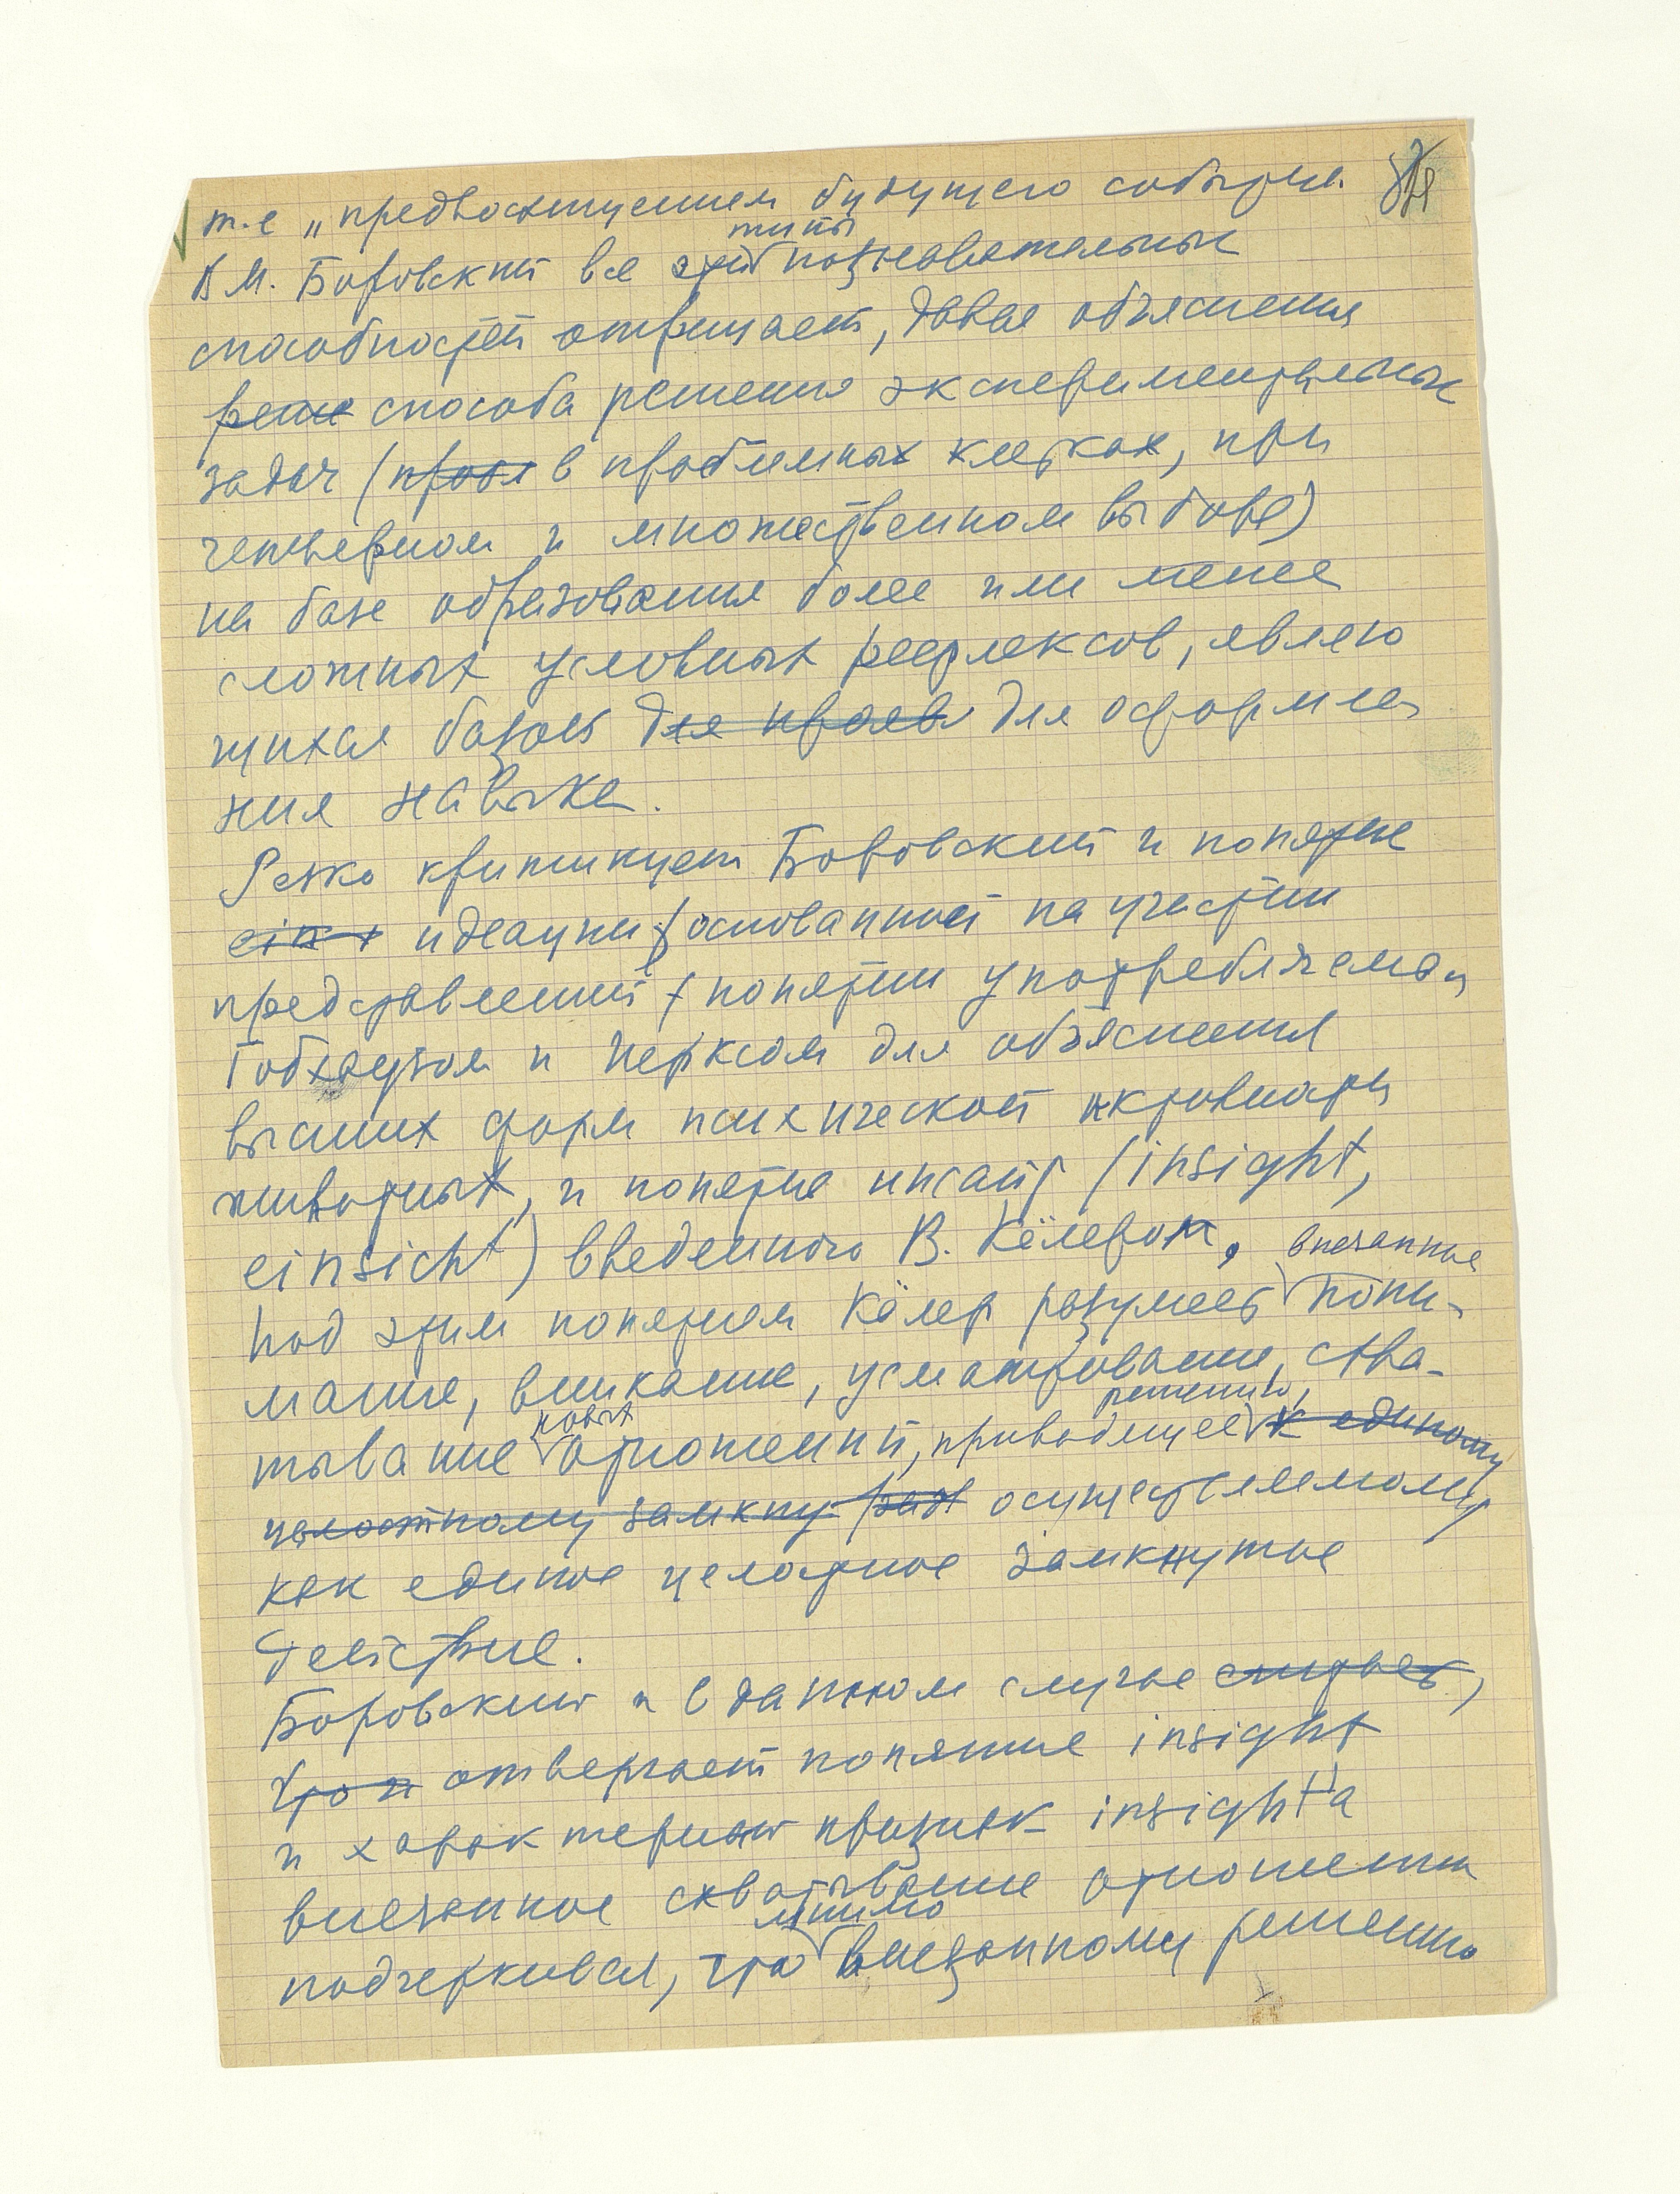 т.е „предвосхищением будущего события.
В М. Боровский все эти типы познавательных
способностей отрицает, давая объяснения
реше способа решения экспериментальных
задач (пробл в проблемных клетках, при
четверном и множественном выборе)
на базе образования более или менее
сложных условных рефлексов, являю
щихся базой для прояв для оформле
ния навыка.
Резко критикует Боровский и понятие
идеации (основанной на участии
представлений) понятии употребляемом
Гобхаузом и Иерксом для объяснения
высших форм психической активности
животных, и понятие инсайт (insight,
einsicht) введенного В. Кёлером,
Под этим понятием Кёлер разумеет внезапное пони-
мание, вникание, усматривание, схва-
тывание новых отношений, приводящее решению, к единому
целостному замкну осуществляемому
как единое целостное замкнутое
действие.
Боровский и в данном случае считает,
что и отвергает понятие insight
и характерный признак insight'а
внезапное схватывание отношений
подчеркивал, что мнимо внезапному решению